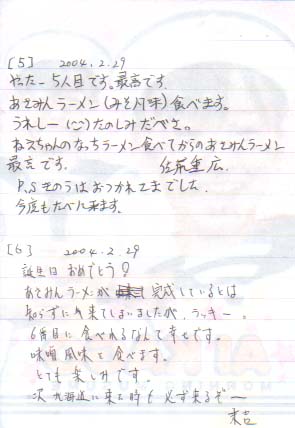 [5] 2004.2.29
やったー5人目です。最高です。
あさみんラーメン(みそ風味)食べます。
うれしー(^^)たのしみだべさ。
ねえちゃんのなっちラーメン食べてからのあさみんラーメン
最高です。 重広.
P.S きのうはおつかれさまでした.
今度もたべに来ます。
[6] 2004.2.29
誕生日おめでとう
あさみんラーメンが 完成しているとは
知らずに 来てしまいましたが、ラッキー。
6番目に食べれるなんて幸せです。
味噌風味を食べます。
とても楽しみです。
次北海道に来る時も必ず来るぞー